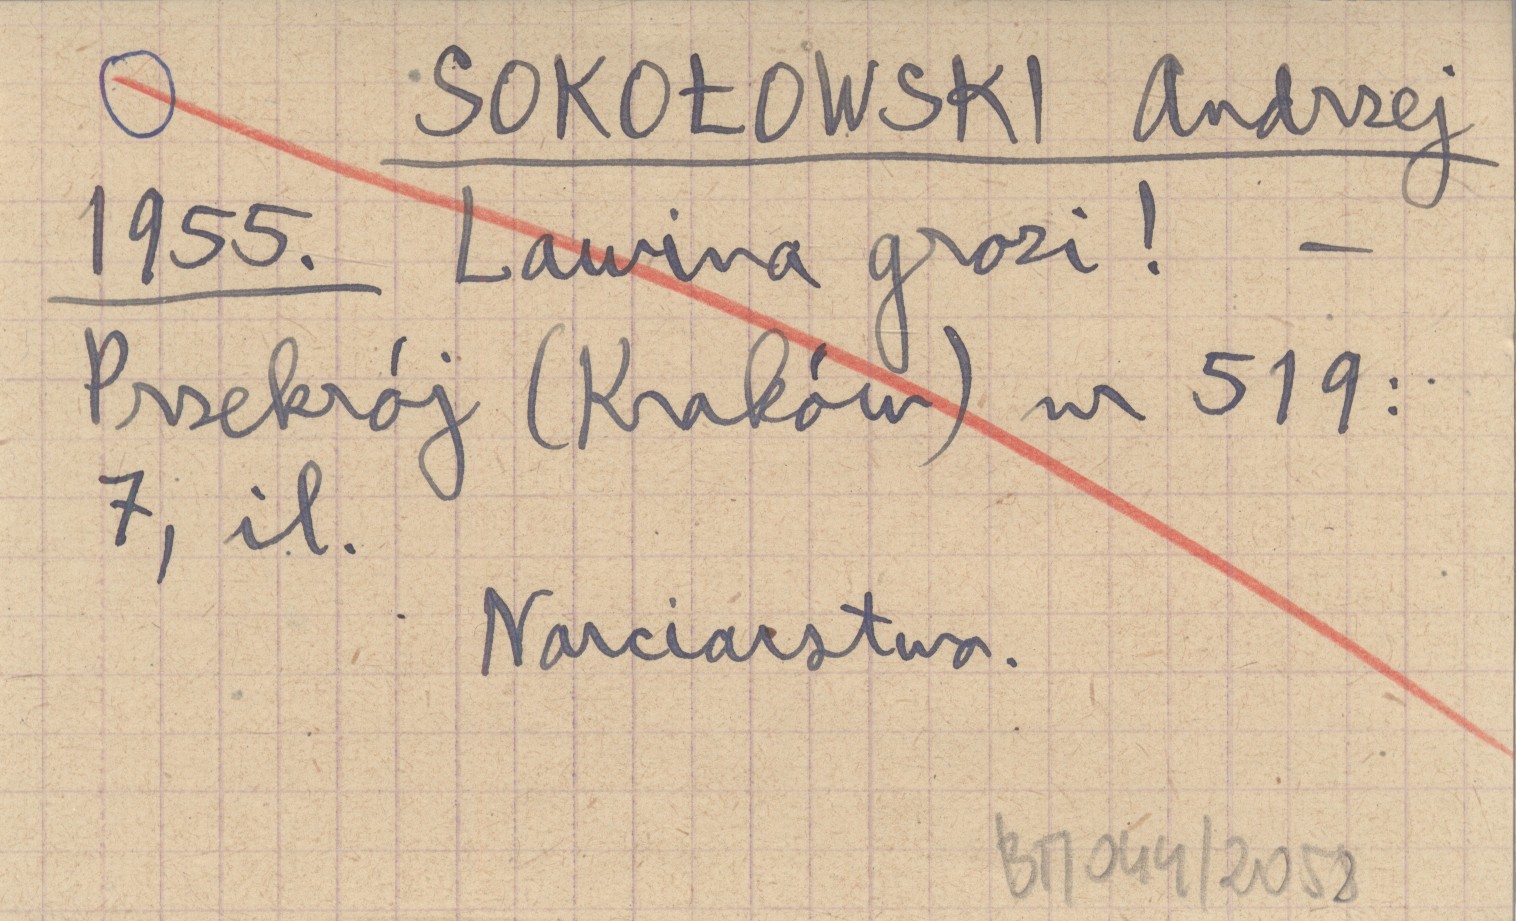 SOKOŁOWSKI Andrzej
1955. Lawina grozi! —
Przekrój (Kraków) nr 519:
7, il.
Narciarstwo.
044/2058